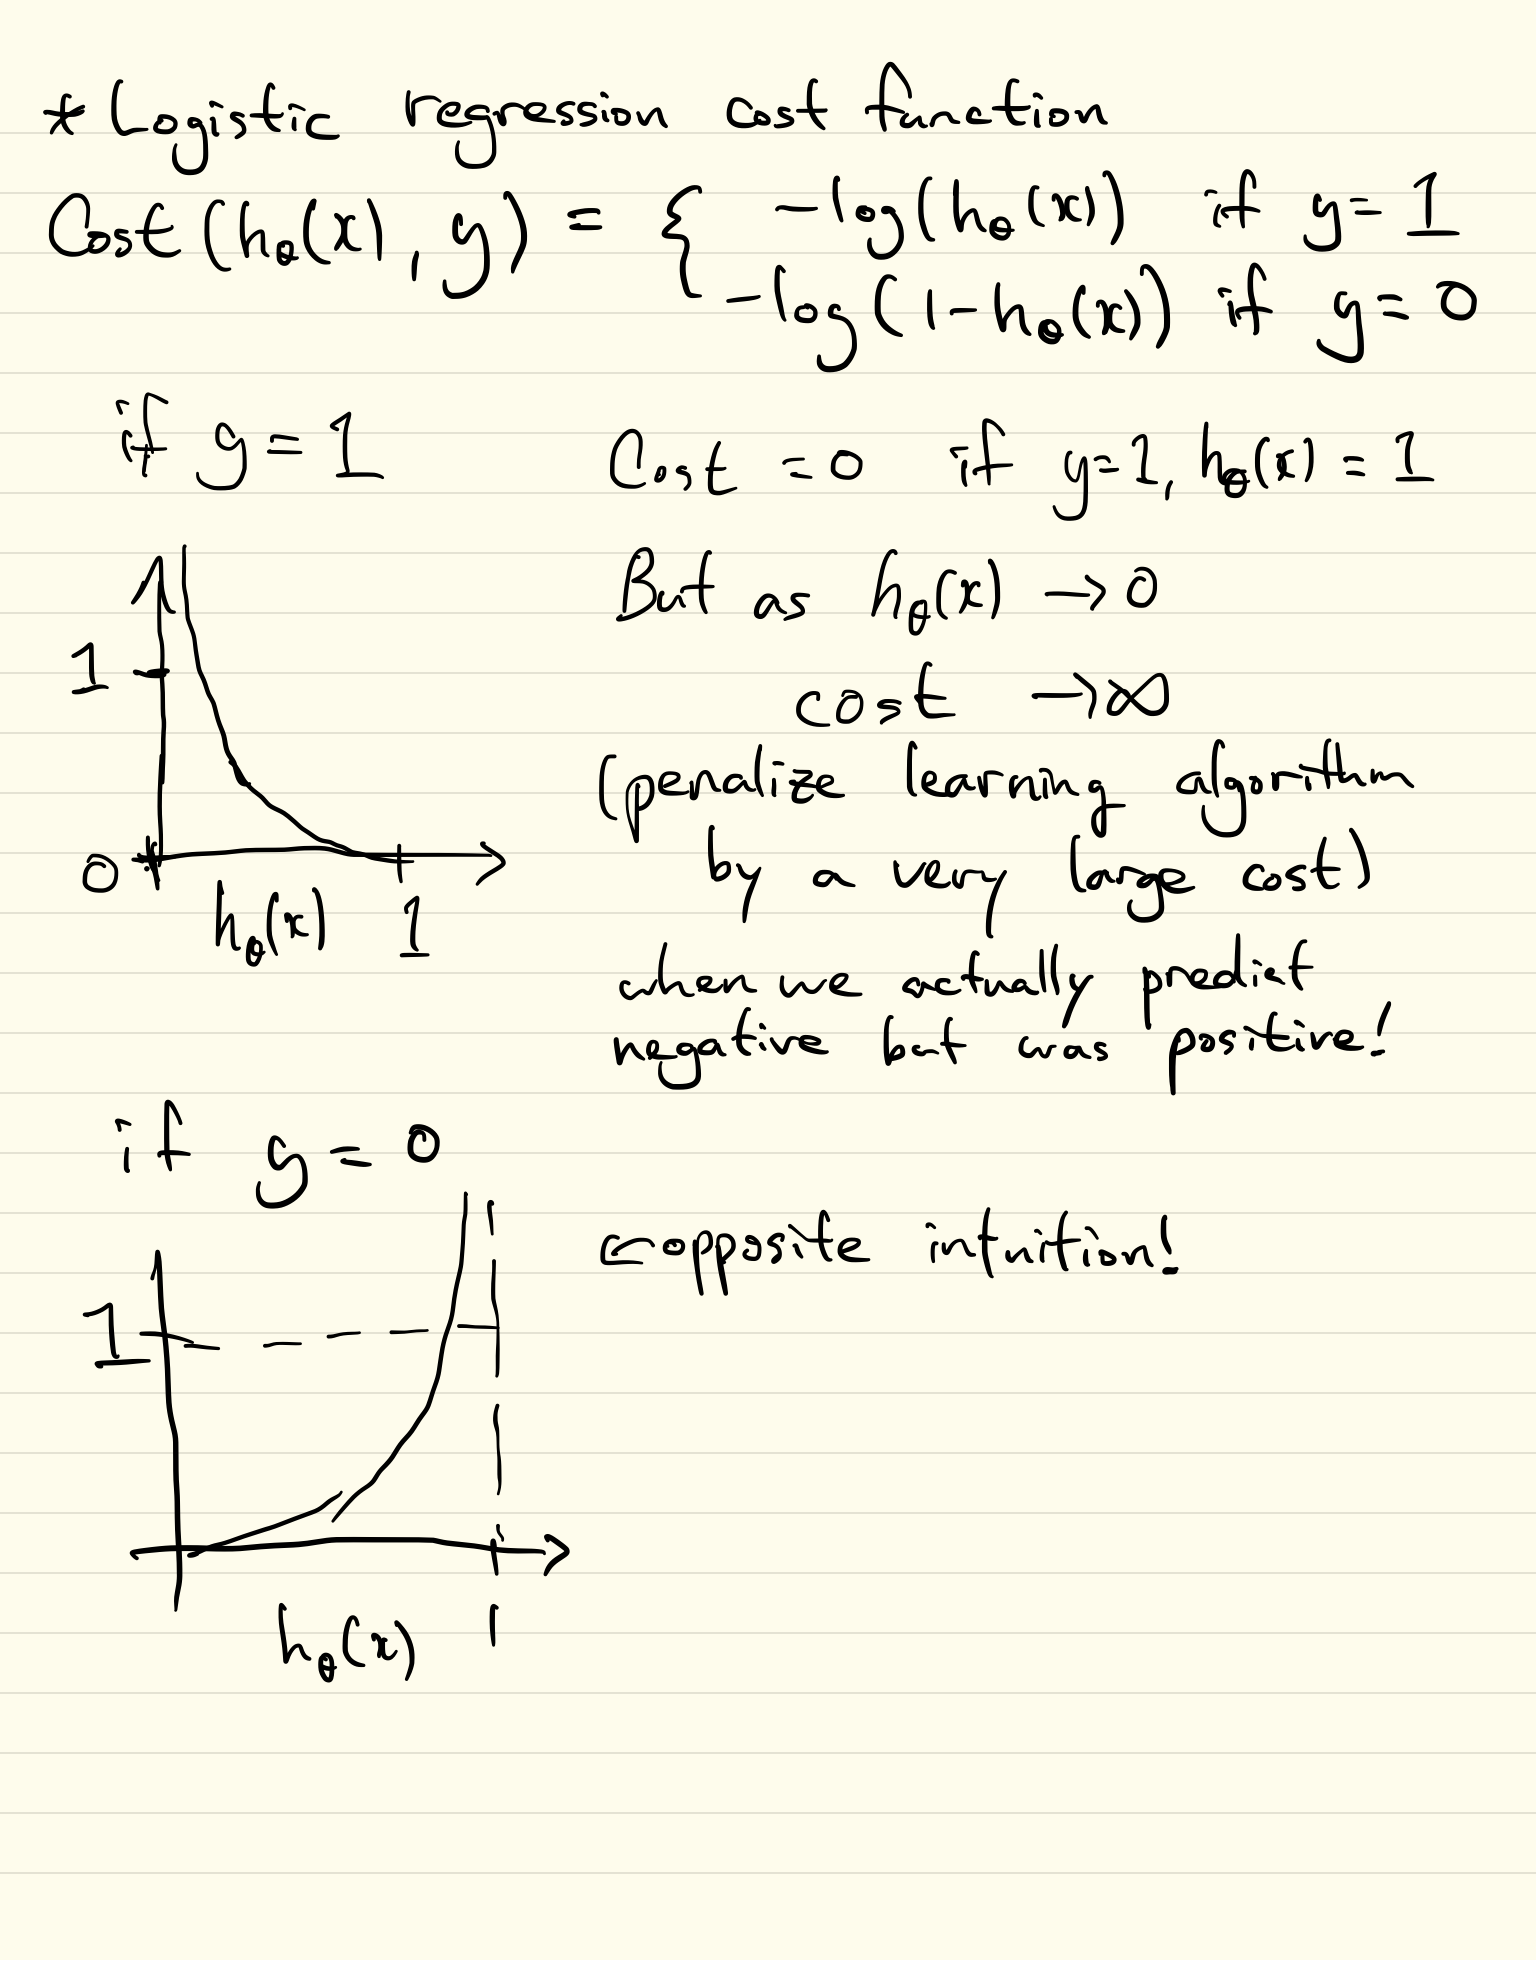 * Logistic regression cost function
Cost(hθ(x), y) = { -log(hθ(x)) if y=1
-log(1-hθ(x)) if y=0
if y=1
Cost =0 if y=1, hθ(x) = 1
But as hθ(x) →0
cost →∞
1
(penalize learning algorithm
by a very large cost)
0
hθ(x) 1
when we actually predict
negative but was positive!
if y=0
←opposite intuition!
1
hθ(x) 1